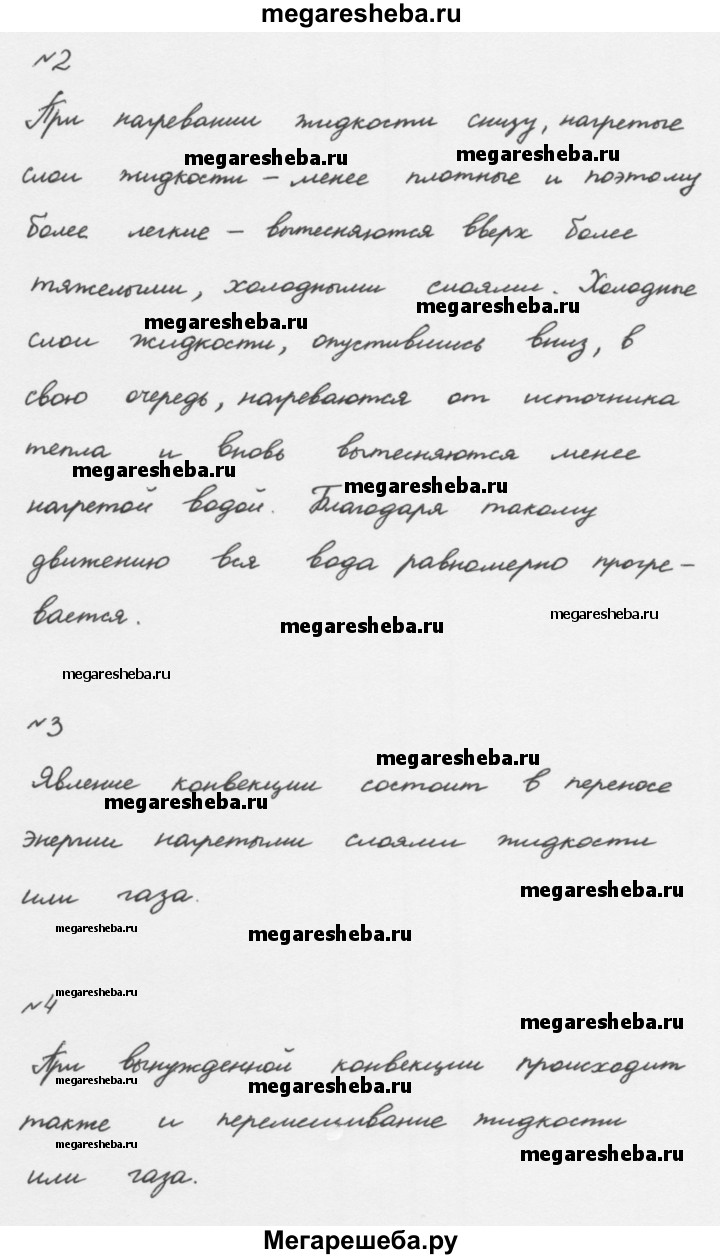 megaresheba.ru
№2
При нагревании жидкости снизу, нагретые
megaresheba.ru megaresheba.ru
слои жидкости – менее плотные и поэтому
более легкие – вытесняются вверх более
тяжелыми, холодными слоями. Холодные
megaresheba.ru megaresheba.ru
слои жидкости, опустившись вниз, в
свою очередь, нагреваются от источника
тепла и вновь вытесняются менее
megaresheba.ru megaresheba.ru
нагретой водой. Благодаря такому
движению вся вода равномерно прогре–
вается.
megaresheba.ru megaresheba.ru
megaresheba.ru
№3
megaresheba.ru
Явление конвекции состоит в переносе
megaresheba.ru
энергии нагретыми слоями жидкости
или газа.
megaresheba.ru
megaresheba.ru megaresheba.ru
megaresheba.ru
№4
megaresheba.ru
При вынужденной конвекции происходит
megaresheba.ru megaresheba.ru
также и перемешивание жидкости
megaresheba.ru megaresheba.ru
или газа.
Мегарешеба.ру